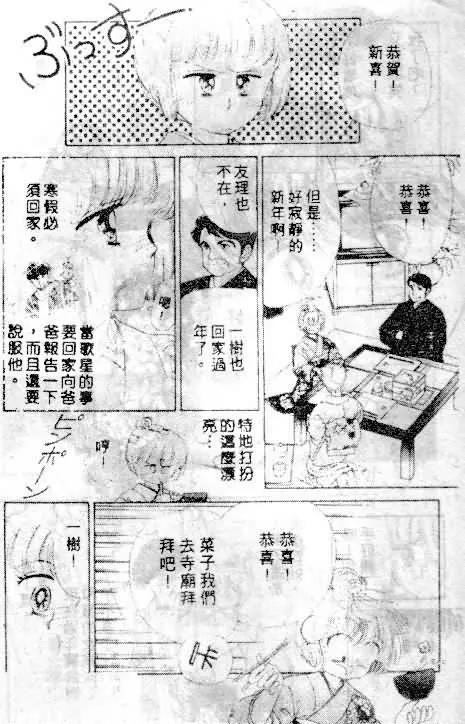 ぶっすー
恭賀！
新喜！
恭喜！
恭喜！
但是……
好寂靜的
新年啊！
友理也
不在，
一樹也
回家過
年了。
寒假必
須回家。
嗯！
當歌星的事
要回家向爸
爸報告一下
，而且還要
說服他。
特地打扮
的這麼漂
亮…
哼！
ピンポーン
恭喜！
恭喜！
菜子我們
去寺廟拜
拜吧！
咔
一樹！